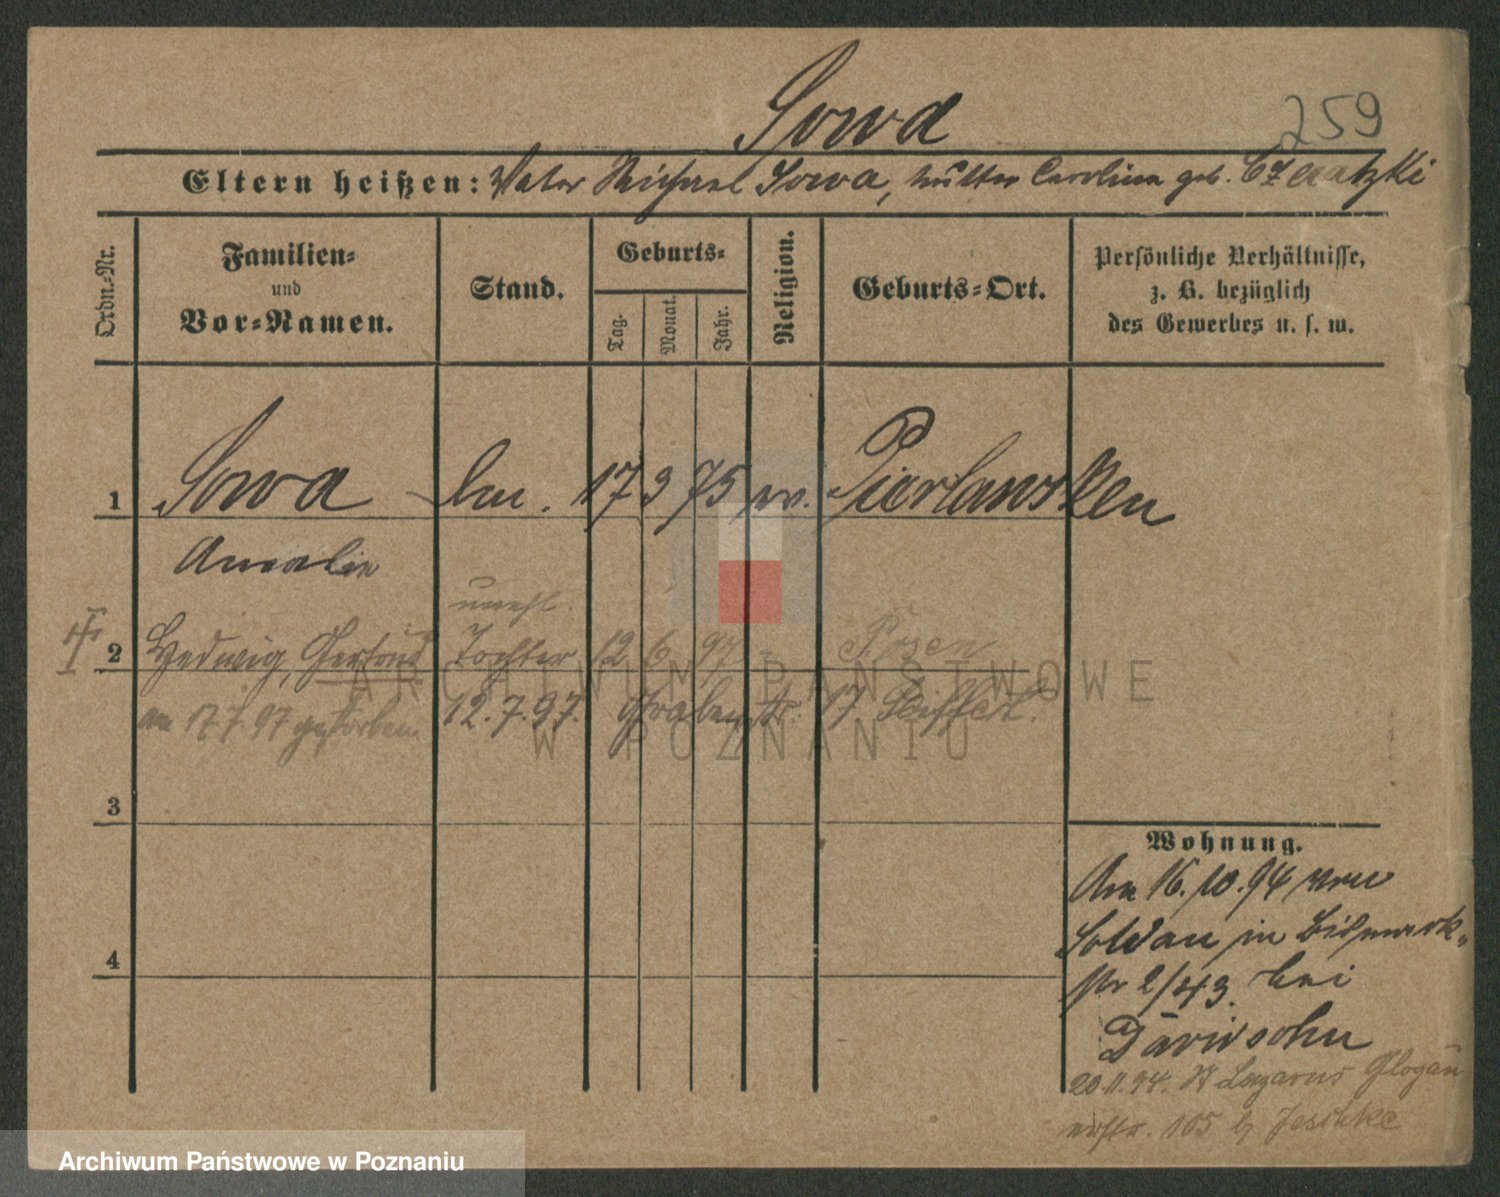 Sowa
259
Eltern heißen: Vater Michael Sowa, Mutter Carolina geb. Czaatzki
Ordn.-Nr.
Familien-
und
Vor-Namen.
Stand.
Geburts-
Tag.
Monat.
Jahr.
Religion.
Geburts-Ort.
Persönliche Verhältnisse,
z. B. bezüglich
des Gewerbes u. s. w.
1 Sowa 17 3 75 ev. Pierlawken
Amalie
unehl.
2 Hedwig, Gertrud Tochter 12 6 97 Posen
am 17.7.97 gestorben 12.7.97. Grabenstr. 17
3
4
Wohnung.
Am 16.10.94 von
Soldau in Bismark-
str 2/43. bei
Davidsohn
20.11.94. St Lazarus Glogau
erstr. 105 b Jeschke
ARCHIWUM PAŃSTWOWE
W POZNANIU
Archiwum Państwowe w Poznaniu